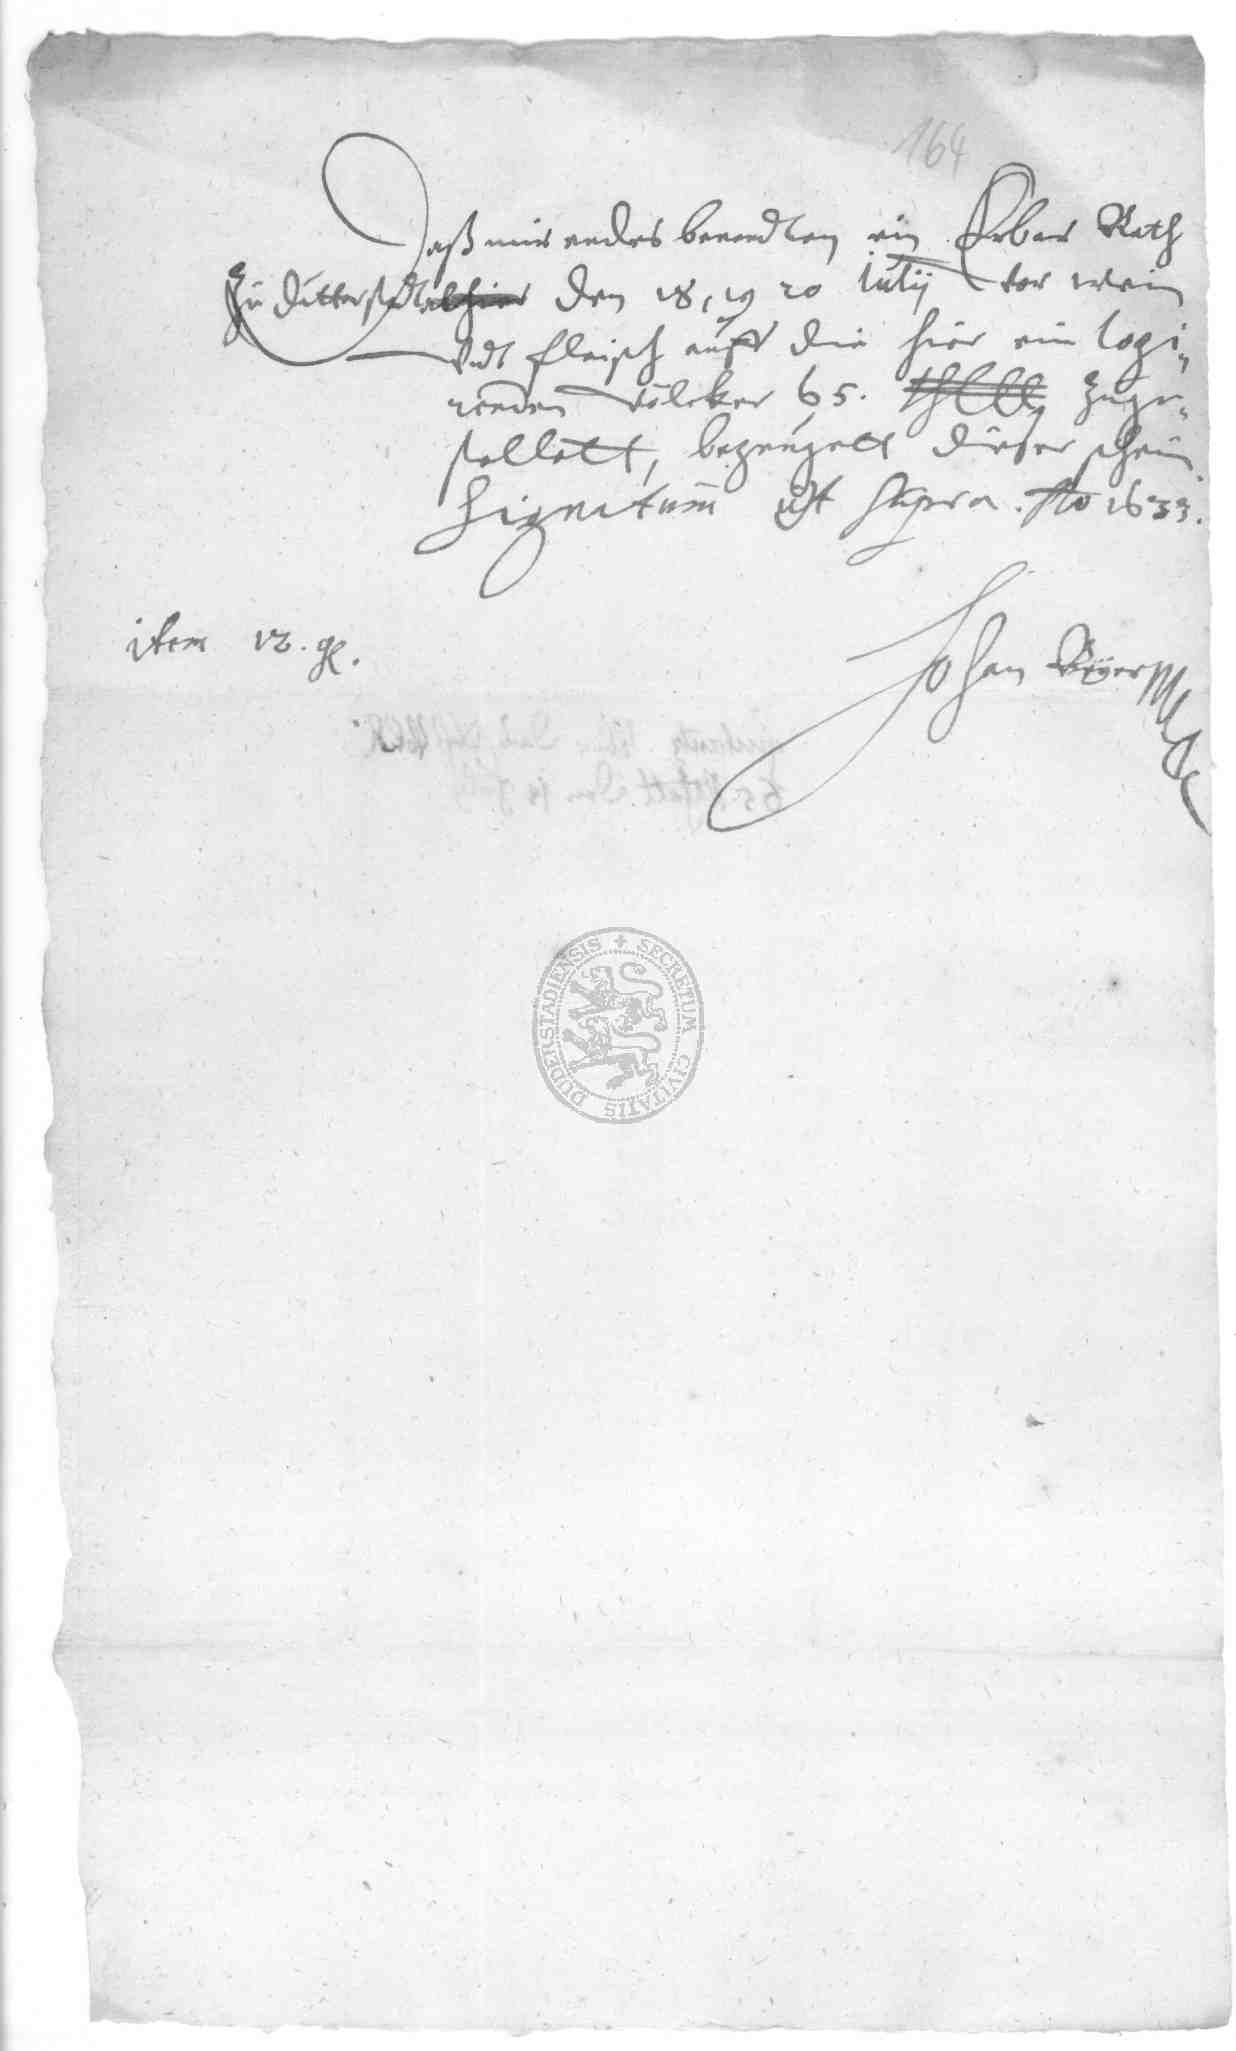 164
Daß mir endes benendten ein Erbar Rath
Zu Dutterstadt alhier den 18, 19 20 Iulij vor wein
vndt fleisch auff die hier ein logi„
renden völcker 65. thlll zuge„
stellett, bezeugett dieser schein
Signatum ut supra. Ao 1633.
item 12. gl.
Johan
DUDERSTADIENSIS + SECRETUM CIVITATIS